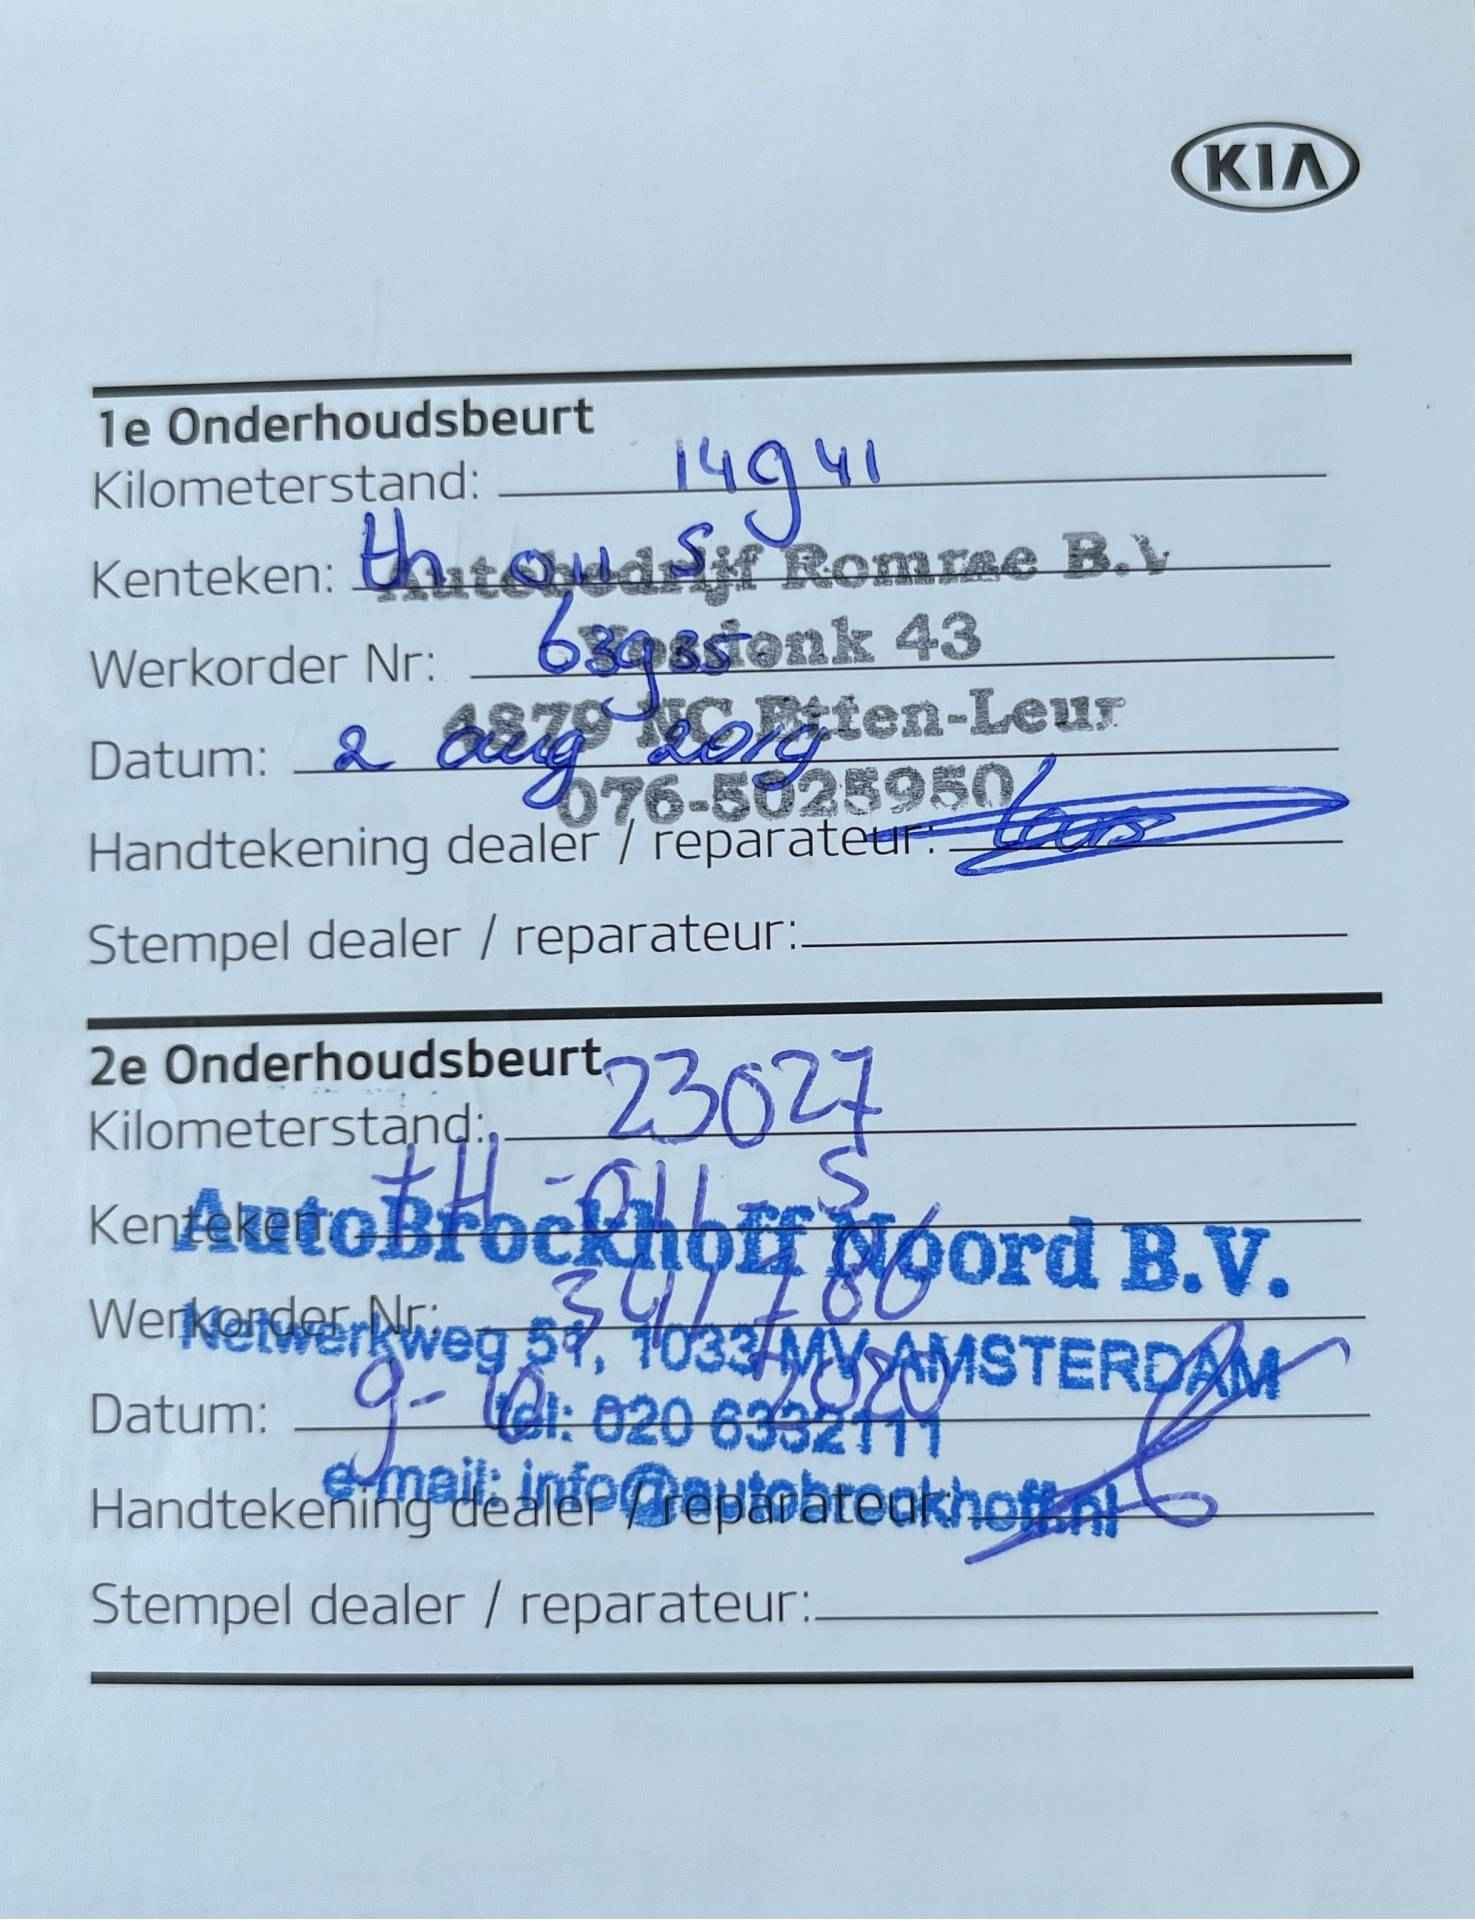 KIA
1e Onderhoudsbeurt
Kilometerstand: 14941
Kenteken: th 011 s
Autobedrijf Romrae B.V
Werkorder Nr:
43
4879 NC Etten-Leur
Datum: 2 aug 2019
076-5025950
Handtekening dealer / reparateur: Lars
Stempel dealer / reparateur:
2e Onderhoudsbeurt
Kilometerstand: 23027
Kenteken: tH-011-S
AutoBrockhoff Noord B.V.
Werkorder Nr:
Ketwerkweg 51, 1033 MV AMSTERDAM
Datum: 9-10 2020
tel: 020 6332111
e-mail: info@autobrockhoff.nl
Handtekening dealer / reparateur:
Stempel dealer / reparateur: